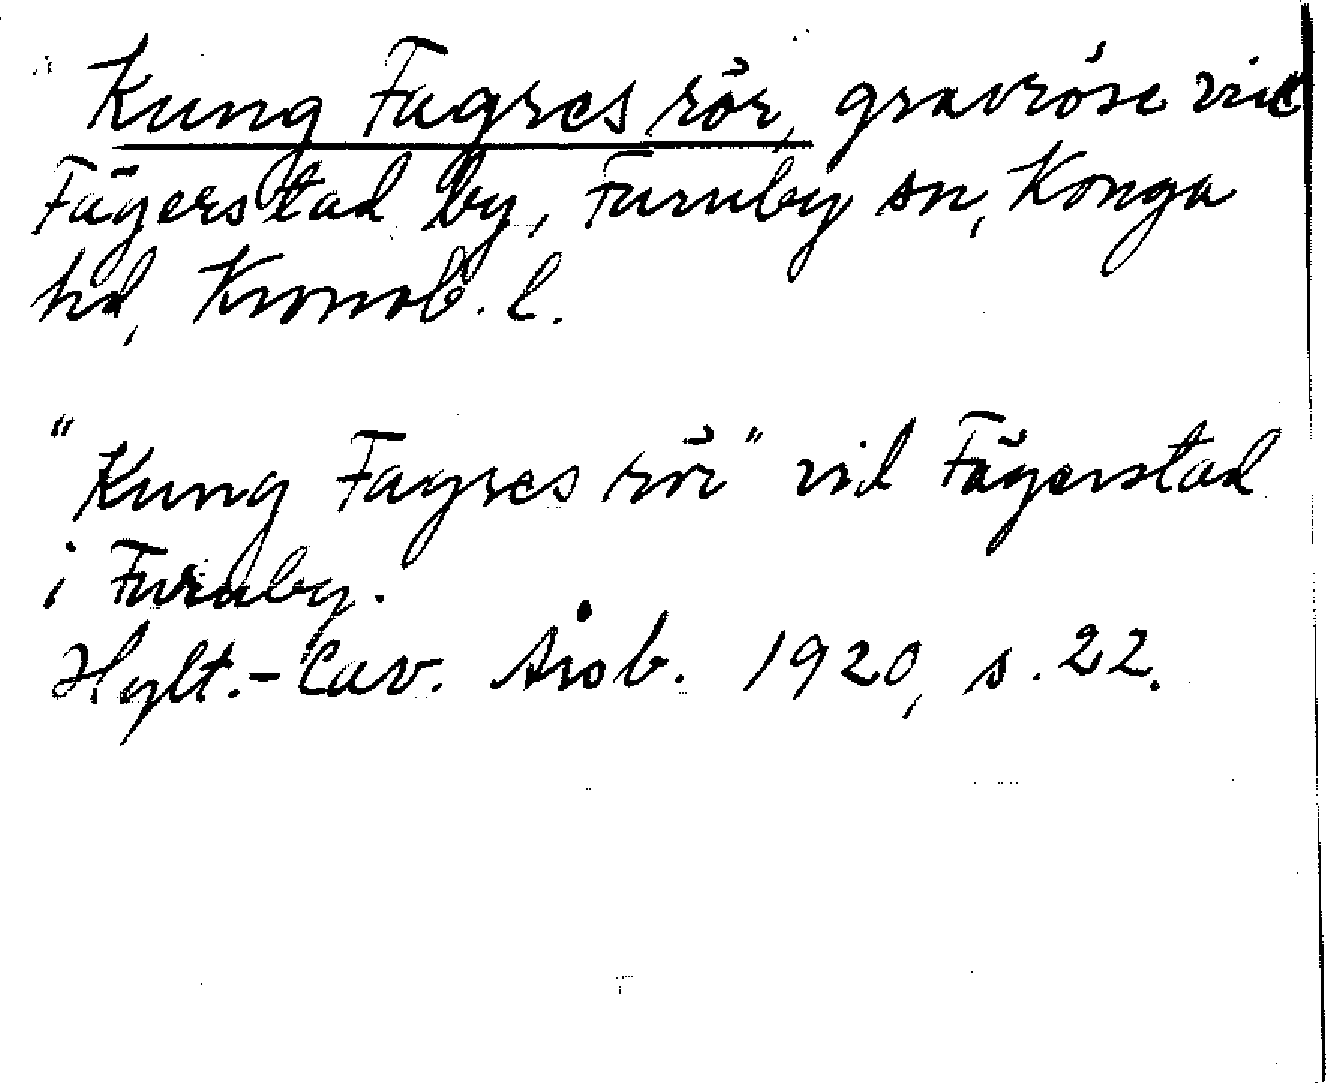 Kung Fagres rör, gravröse vid
Fägerstad by, Furuby sn, Konga
hd, Kronob. l.
"Kung Fagres rör" vid Fägerstad
i Furuby.
Hylt.-Cav. Årsb. 1920, s. 22.